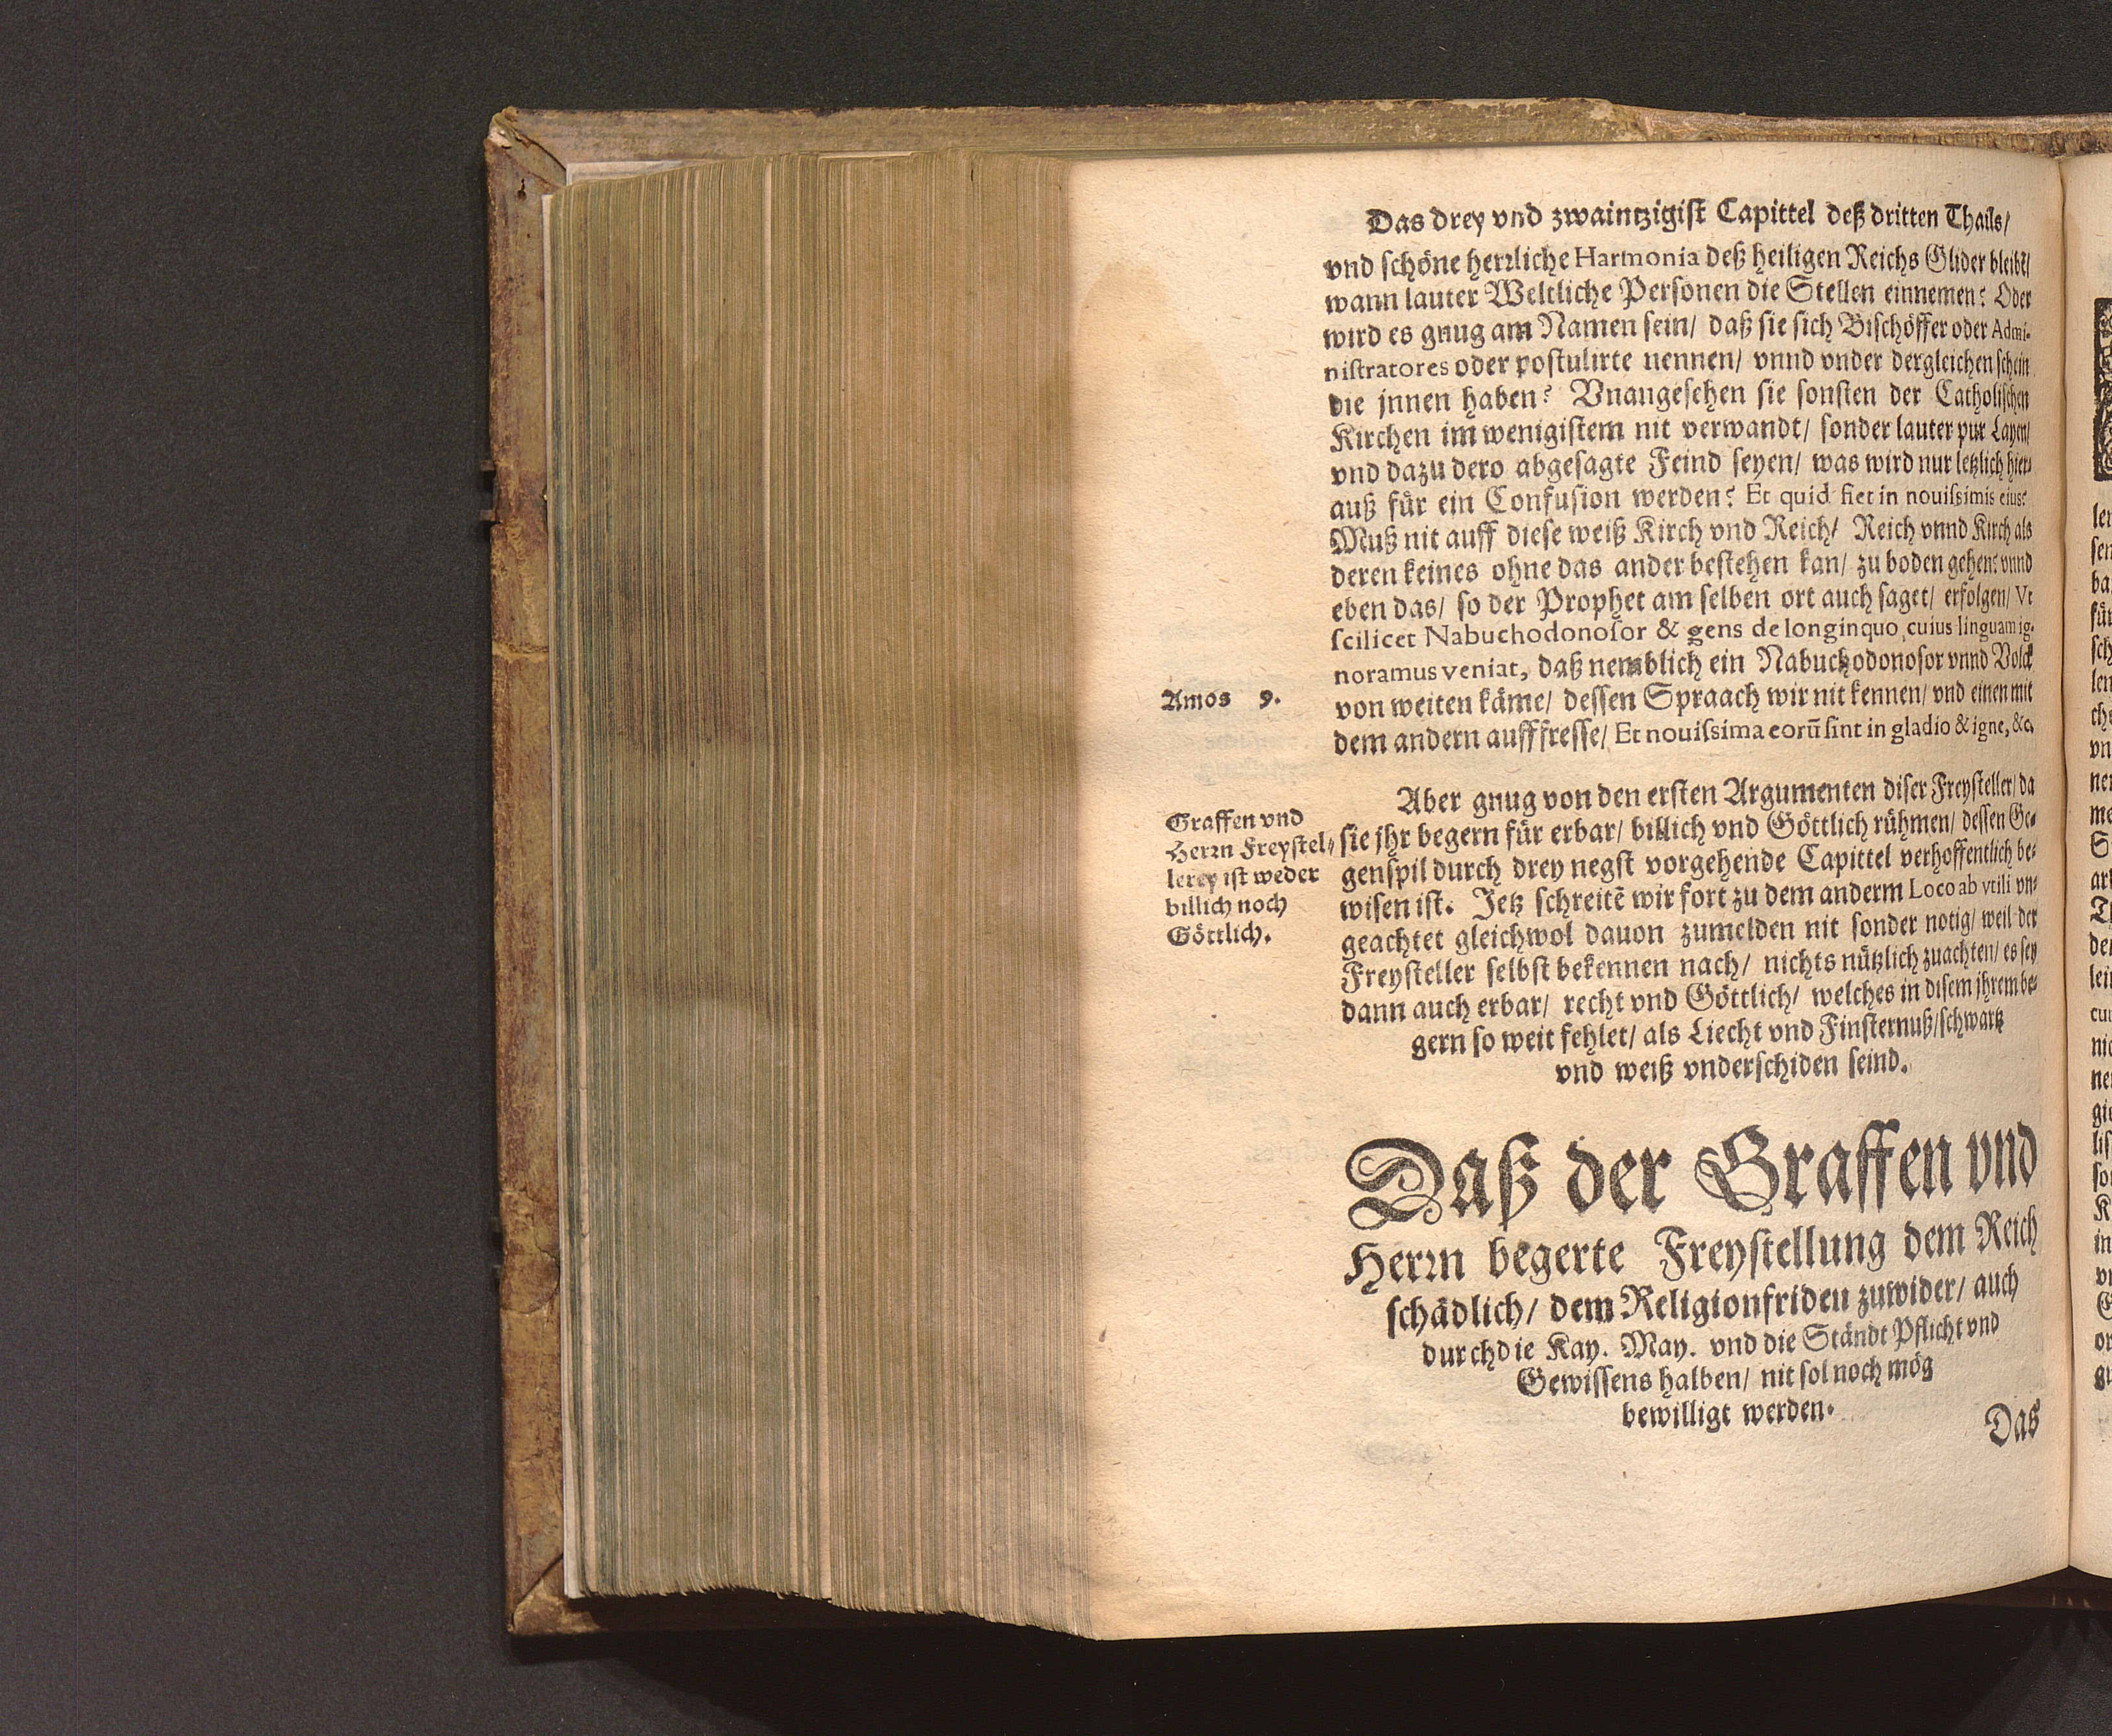 Das drey vnd zwaintzigist Capittel deß dritten Thails/
vnd schöne herrliche Harmonia deß heiligen Reichs Glider bleibt/
wann lauter Weltliche Personen die Stellen einnemen? Oder
wird es gnug am Namen sein/ daß sie sich Bischöffer oder Admi-
nistratores oder postulirte nennen/ vnnd vnder dergleichen schein
die jnnen haben? Vnangesehen sie sonsten der Catholischen
Kirchen im wenigistem nit verwandt/ sonder lauter pur Layen/
vnd dazu dero abgesagte Feind seyen/ was wird nur letzlich hier-
auß für ein Confusion werden? Et quid fiet in nouissimis eius?
Muß nit auff diese weiß Kirch vnd Reich/ Reich vnnd Kirch als
deren keines ohne das ander bestehen kan/ zu boden gehen? vnnd
eben das/ so der Prophet am selben ort auch saget/ erfolgen/ Vt
scilicet Nabuchodonosor & gens de longinquo, cuius linguam ig-
noramus veniat, daß nemblich ein Nabuchodonosor vnnd Volck
Amos 9.
von weiten käme/ dessen Spraach wir nit kennen/ vnd einen mit
dem andern aufffresse/ Et nouissima eorū sint in gladio & igne, &c.
Aber gnug von den ersten Argumenten diser Freysteller/ da
Graffen vnd
Herrn Freystel-
lerey ist weder
billich noch
Göttlich.
sie jhr begern für erbar/ billich vnd Göttlich rühmen/ dessen Ge-
genspil durch drey negst vorgehende Capittel verhoffentlich be-
wisen ist. Jetz schreitē wir fort zu dem anderm Loco ab vtili vn-
geachtet gleichwol dauon zumelden nit sonder notig/ weil der
Freysteller selbst bekennen nach/ nichts nützlich zuachten/ es sey
dann auch erbar/ recht vnd Göttlich/ welches in disem jhrem be-
gern so weit fehlet/ als Liecht vnd Finsternuß/ schwartz
vnd weiß vnderschiden seind.
Daß der Graffen vnd
Herrn begerte Freystellung dem Reich
schädlich/ dem Religionfriden zuwider/ auch
durch die Kay. May. vnd die Ständt Pflicht vnd
Gewissens halben/ nit sol noch mög
bewilligt werden.
Das